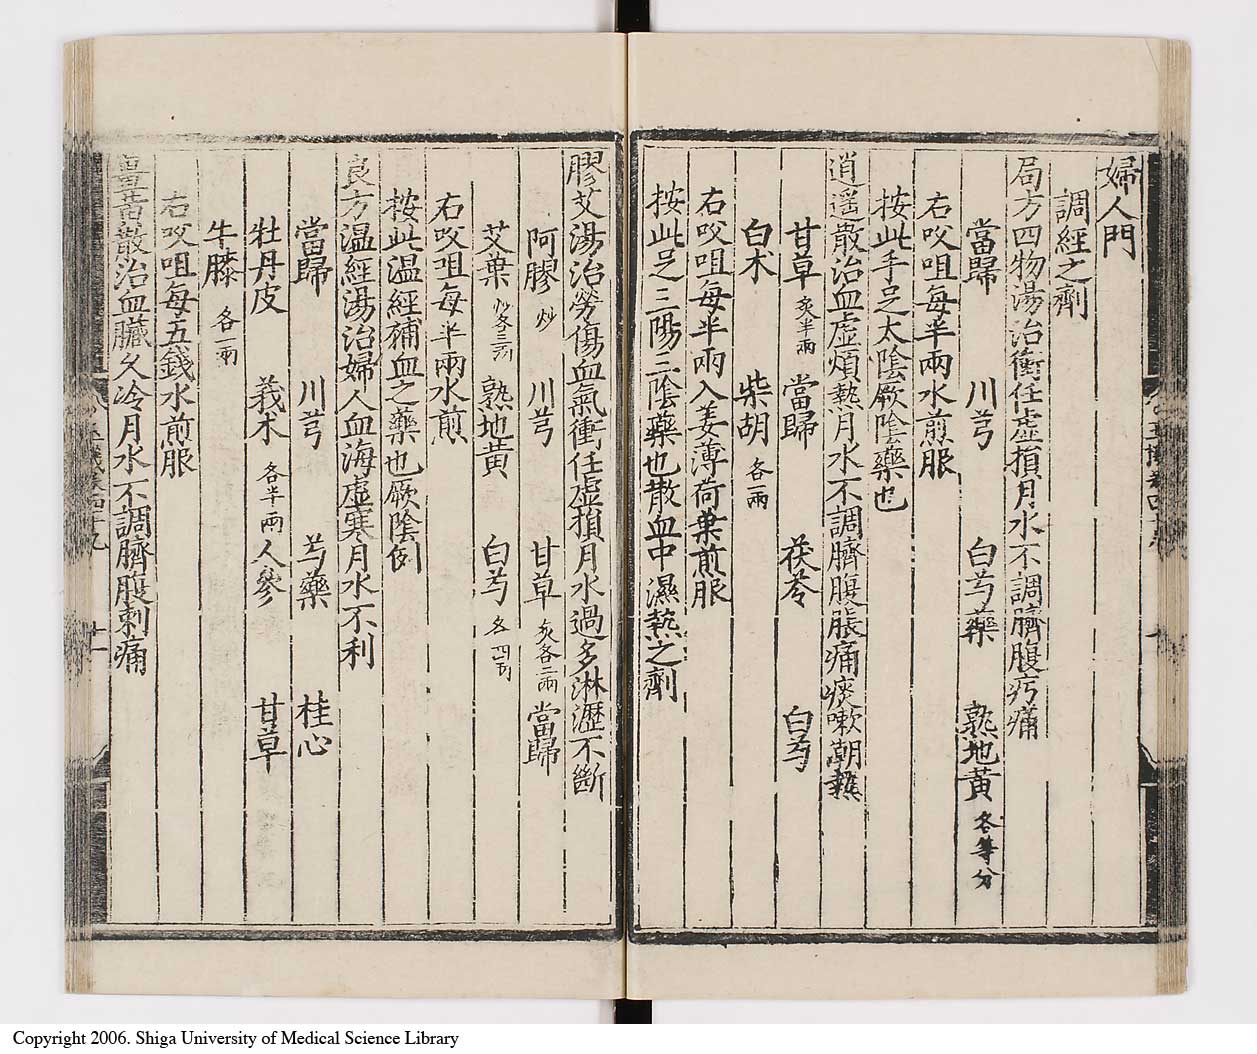 婦人門
調經之劑
局方四物湯治衝任虛損月水不調臍腹㽲痛
當歸 川芎 白芍藥 熟地黃 各等分
右㕮咀每半兩水煎服
按此手足太陰厥陰藥也
逍遥散治血虛煩熱月水不調臍腹脹痛痰嗽潮熱
甘草 炙半兩 當歸 茯苓 白芍
白朮 柴胡 各一兩
右㕮咀每半兩入姜薄荷葉煎服
按此足三陽三陰藥也散血中濕熱之劑
膠艾湯治勞傷血氣衝任虛損月水過多淋瀝不斷
阿膠 炒 川芎 甘草 炙各二兩 當歸
艾葉 炒各三兩 熟地黃 白芍 各四兩
右㕮咀每半兩水煎
按此温經補血之藥也厥陰例
良方温經湯治婦人血海虛寒月水不利
當歸 川芎 芍藥 桂心
牡丹皮 莪朮 各半兩 人參 甘草
牛膝 各一兩
右㕮咀每五錢水煎服
薑黃散治血臟久冷月水不調臍腹刺痛
Copyright 2006. Shiga University of Medical Science Library